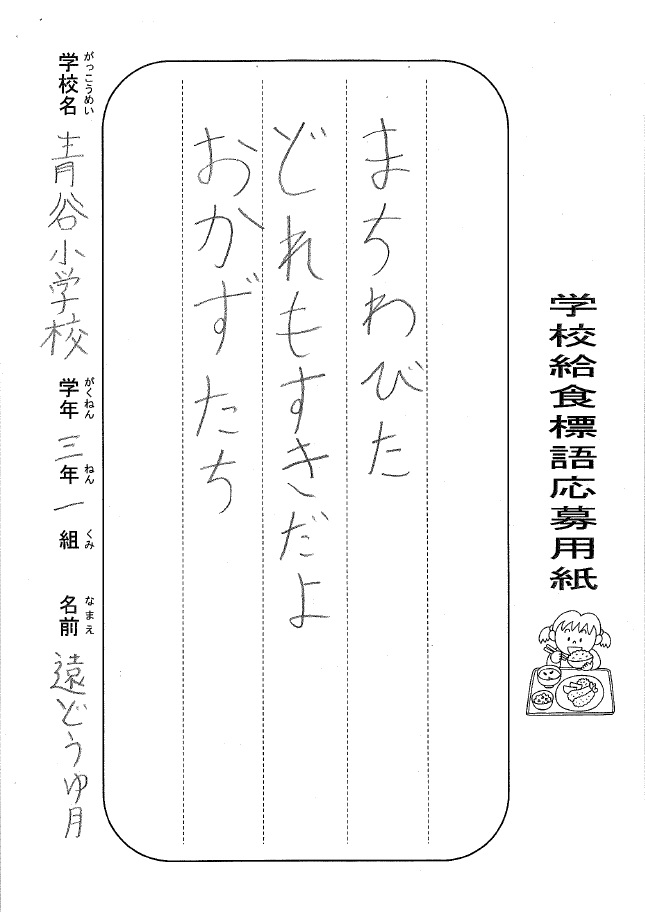 学校給食標語応募用紙
まちわびた
どれもすきだよ
おかずたち
学校名 青谷小学校 学年 三年 一組 名前 遠どうゆ月
がっこうめい がくねん ねん くみ なまえ